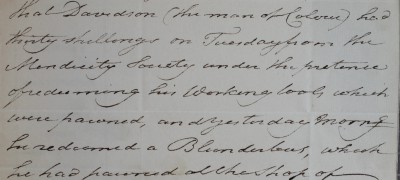 that Davidson (the man of Colour) had
thirty shillings on Tuesday from the
Mendicity Society under the pretence
of redeeming his Working tools which
were pawned, and yesterday Morng
he redeemed a Blunderbuss, which
he had pawned at the Shop of